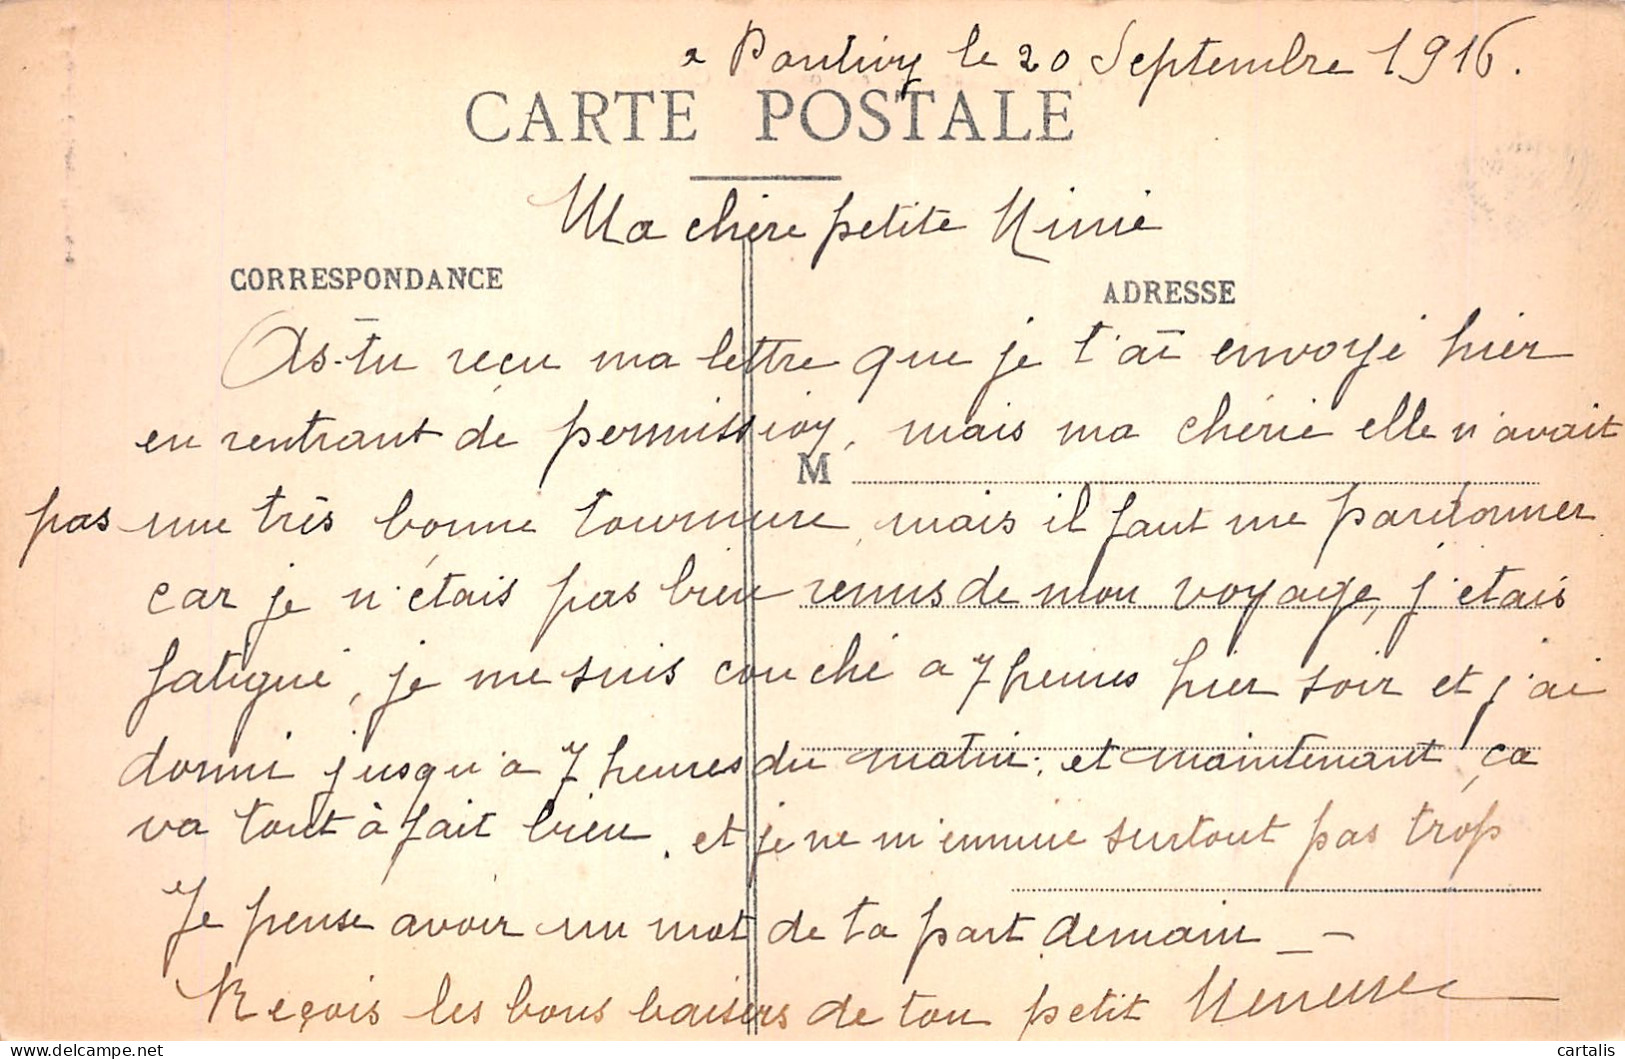 a Pontivy le 20 Septembre 1916.
CARTE POSTALE
Ma chère petite Ninie
CORRESPONDANCE
ADRESSE
As-tu reçu ma lettre que je t'ai envoyé hier
en rentrant de permission, mais ma chérie elle n'avait
M
pas une très bonne tournure, mais il faut me pardonner
car je n'étais pas bien remis de mon voyage, j'étais
fatigué, je me suis couché a 7 heures hier soir et j'ai
dormi jusqu'a 7 heures du matin. et maintenant ça
va tout à fait bien. et je ne m'ennuie surtout pas trop
Je pense avoir un mot de ta part demain
Reçois les bons baisers de ton petit
cartalis